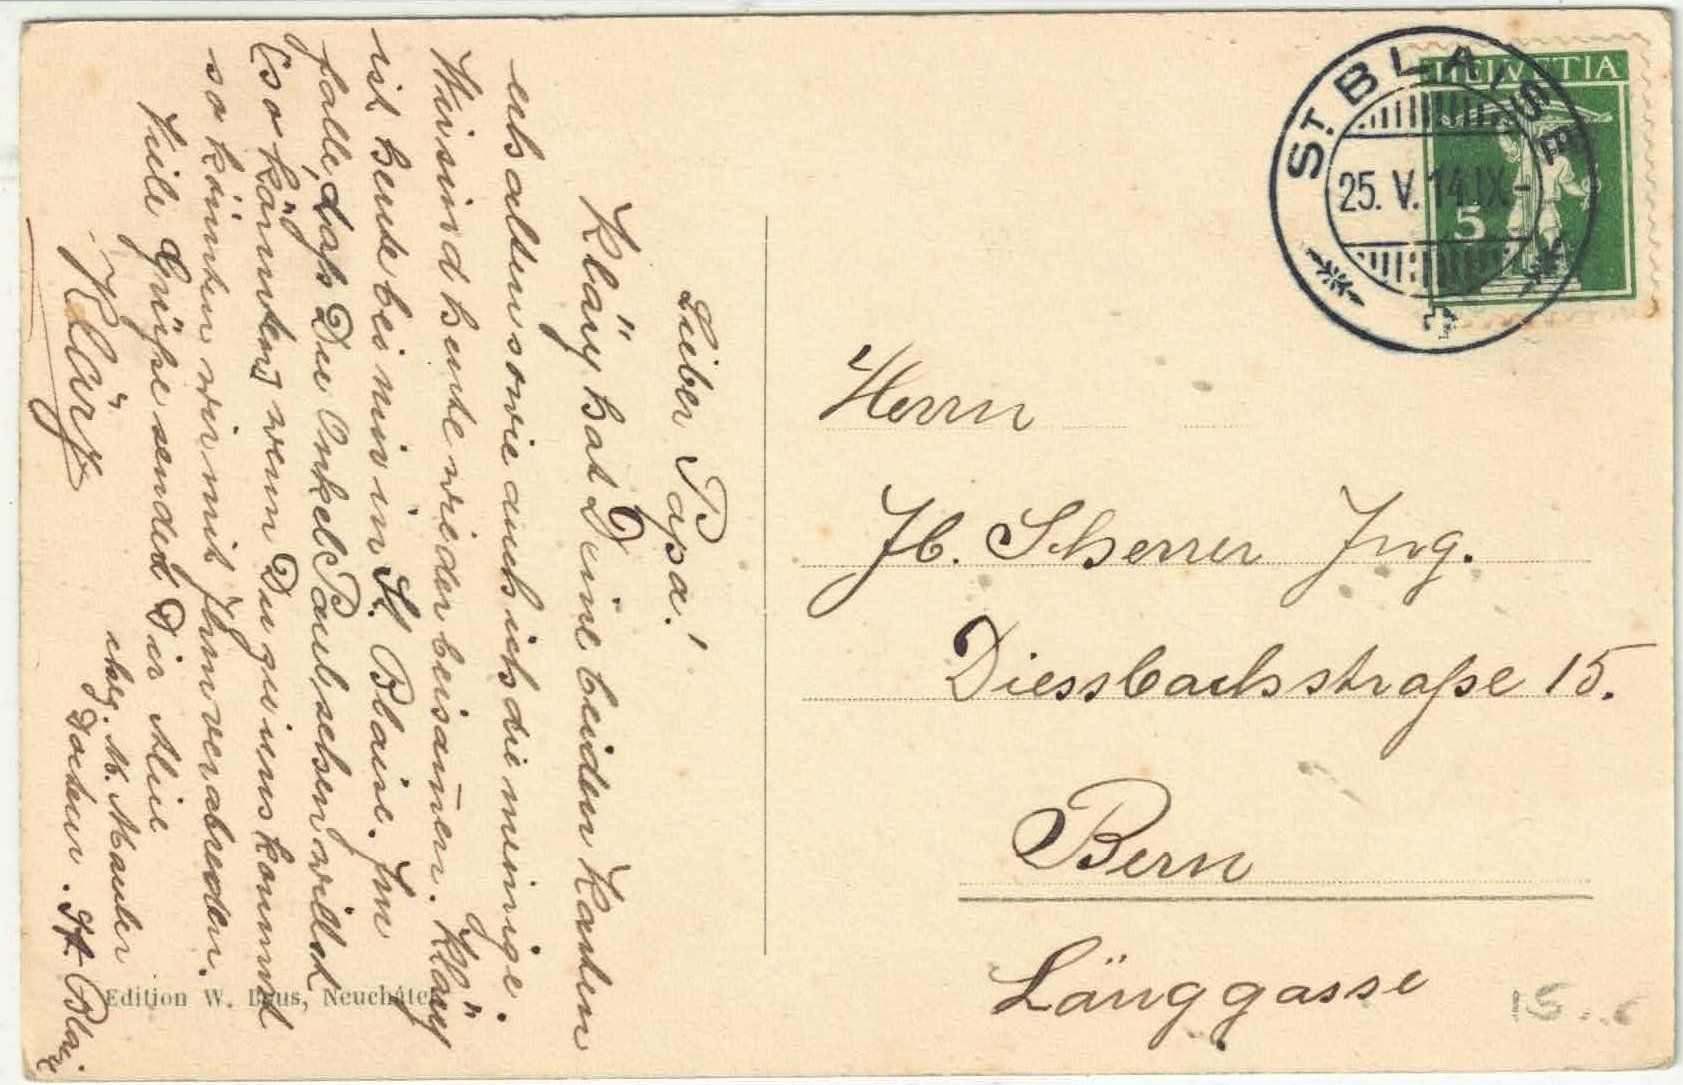 Lieber Papa!
Kläry hat Deine beiden Karten
erhalten sowie auch ich die meinige.
Wir sind heute wieder beisamen. Kläry
ist heute bei mir in St. Blaise. Im
falle, dass Du Onkel Paul sehen willst
(so könnten) wenn Du zu uns kommst
so könnten wir mit Ihm verabreden.
Viele Grüsse sendet Dir Alice
chez. M. Mauler
St Blaise
Kläry
Herrn
Jb. Scherrer Ing.
Diessbachstraße 15.
Bern
Länggasse
ST. BLAISE
25. V. 14. IX-
HELVETIA
5
Edition W. Bous, Neuchâtel
15